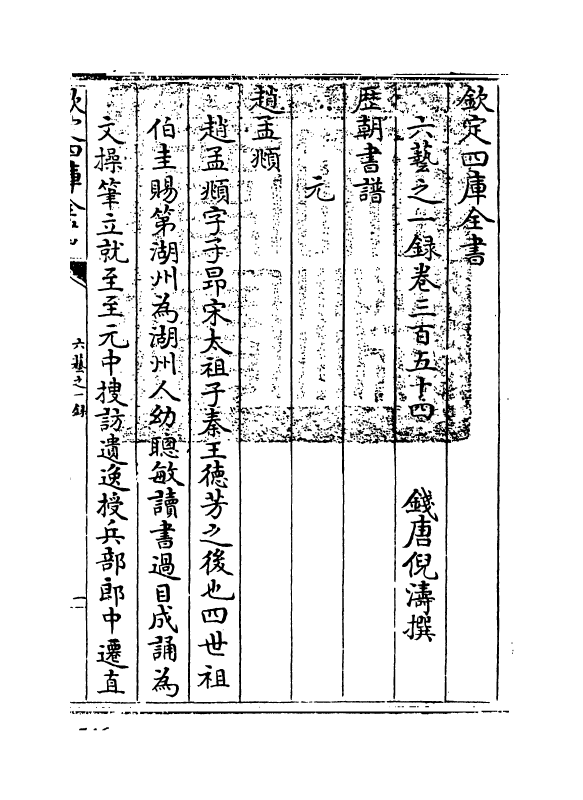 欽定四庫全書
六藝之一録卷三百五十四
錢唐倪濤撰
歴朝書譜
元
趙孟頫
趙孟頫字子昻宋太祖子秦王徳芳之後也四世祖
伯圭賜第湖州為湖州人幼聰敏讀書過目成誦為
文操筆立就至至元中搜訪遺逸授兵部郎中遷直
六藝之一録
一